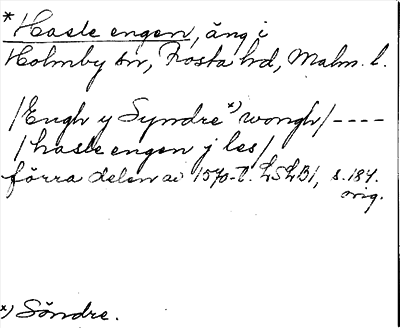 *Hasle engen, äng i
Holmby sn, Frosta hd, Malm. l.
/Engh y Syndre*) wongh/----
/hasle engen j les/
förra delen av 1570-t. LSLB1, s. 184.
orig.
*) Söndre.